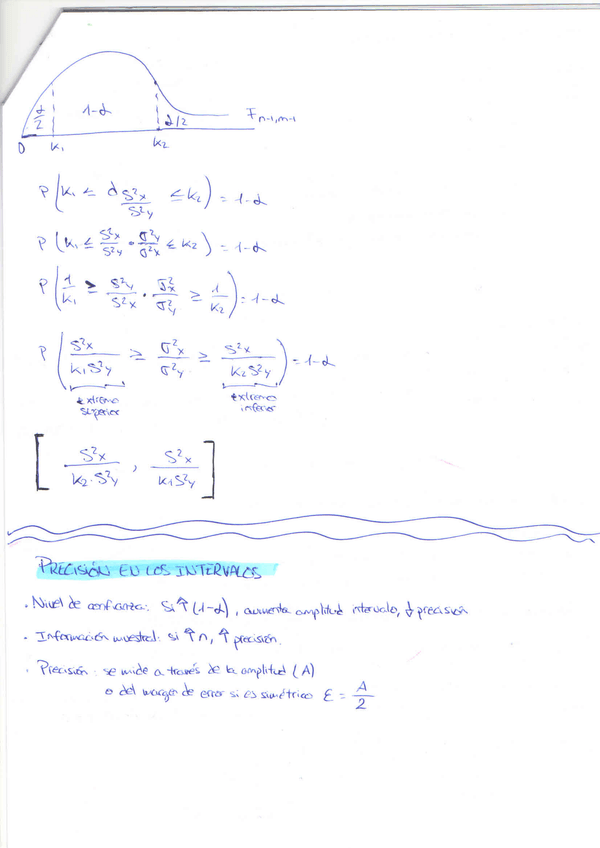 α/2 1-α α/2 F n-1, m-1
0 K₁ K₂
P(K₁ ≤ d S²x/S²y ≤ K₂) = 1-α
P(K₁ ≤ S²x/S²y · σ²y/σ²x ≤ K₂) = 1-α
P(1/K₁ ≥ S²y/S²x · σ²x/σ²y ≥ 1/K₂) = 1-α
P(S²x/K₁S²y ≥ σ²x/σ²y ≥ S²x/K₂S²y) = 1-α
extremo superior extremo inferior
[S²x/K₂·S²y , S²x/K₁S²y]
PRECISIÓN EN LOS INTERVALOS
· Nivel de confianza: Si ↑ (1-α), aumenta amplitud intervalo, ↓ precisión
· Información muestral: si ↑ n, ↑ precisión.
· Precisión: se mide a través de la amplitud (A)
o del margen de error si es simétrico ε = A/2